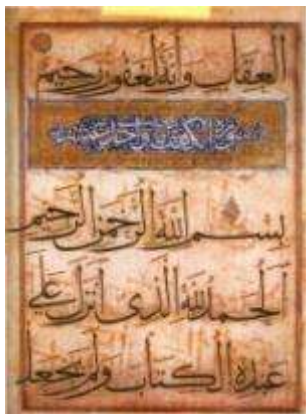 العقاب وإنه لغفور رحيم
بسم الله الرحمن الرحيم
الحمد لله الذي أنزل على
عبده الكتاب ولم يجعل